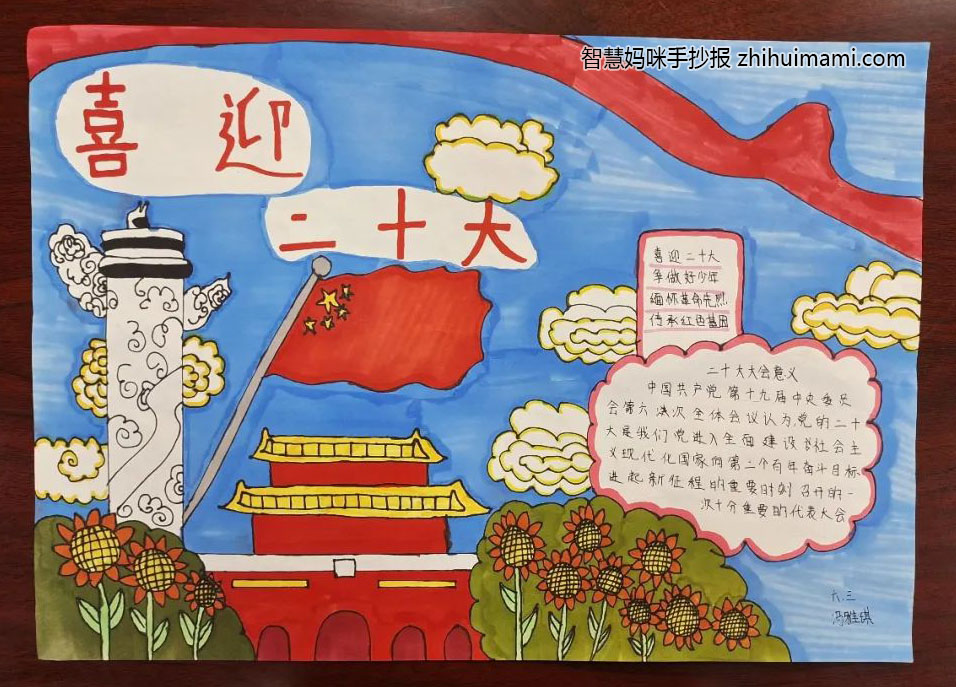 智慧妈咪手抄报 zhihuimami.com
喜迎
二十大
喜迎二十大
争做好少年
缅怀革命先烈
传承红色基因
二十大大会意义
中国共产党第十九届中央委员
会第六次全体会议认为,党的二十
大是我们党进入全面建设社会主
义现代化国家向第二个百年奋斗目标
进起新征程的重要时刻召开的一
次十分重要的代表大会
六.三
冯雅琪